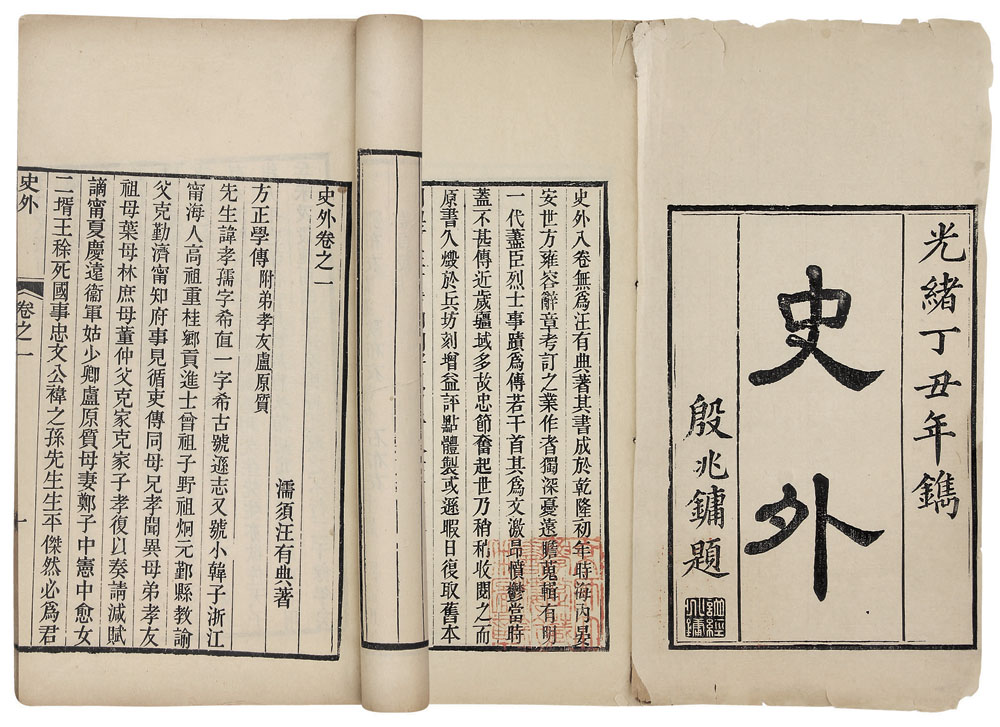 光緒丁丑年鐫
史外
殷兆鏞題
史外八卷無爲汪有典著其書成於乾隆初年時海内晏
安世方雍容辭章考訂之業作者獨深憂遠瞻蒐輯有明
一代藎臣烈士事蹟爲傳若干首其爲文激昻憤鬱當時
蓋不甚傳近歲疆域多故忠節奮起世乃稍稍收閱之而
原書入燬於兵坊刻增益評點體製或遜暇日復取舊本
史外卷之一
濡須汪有典著
方正學傳附弟孝友盧原質
先生諱孝孺字希直一字希古號遜志又號小韓子浙江
甯海人高祖重桂鄉貢進士曾祖子野祖炯元鄞縣教諭
父克勤濟甯知府事見循吏傳同母兄孝聞異母弟孝友
祖母葉母林庶母董仲父克家克家子孝復以奏請減賦
謫甯夏慶遠衞軍姑少卿盧原質母妻鄭子中憲中愈女
二壻王稌死國事忠文公禕之孫先生生平傑然必爲君
史外
卷之一
一